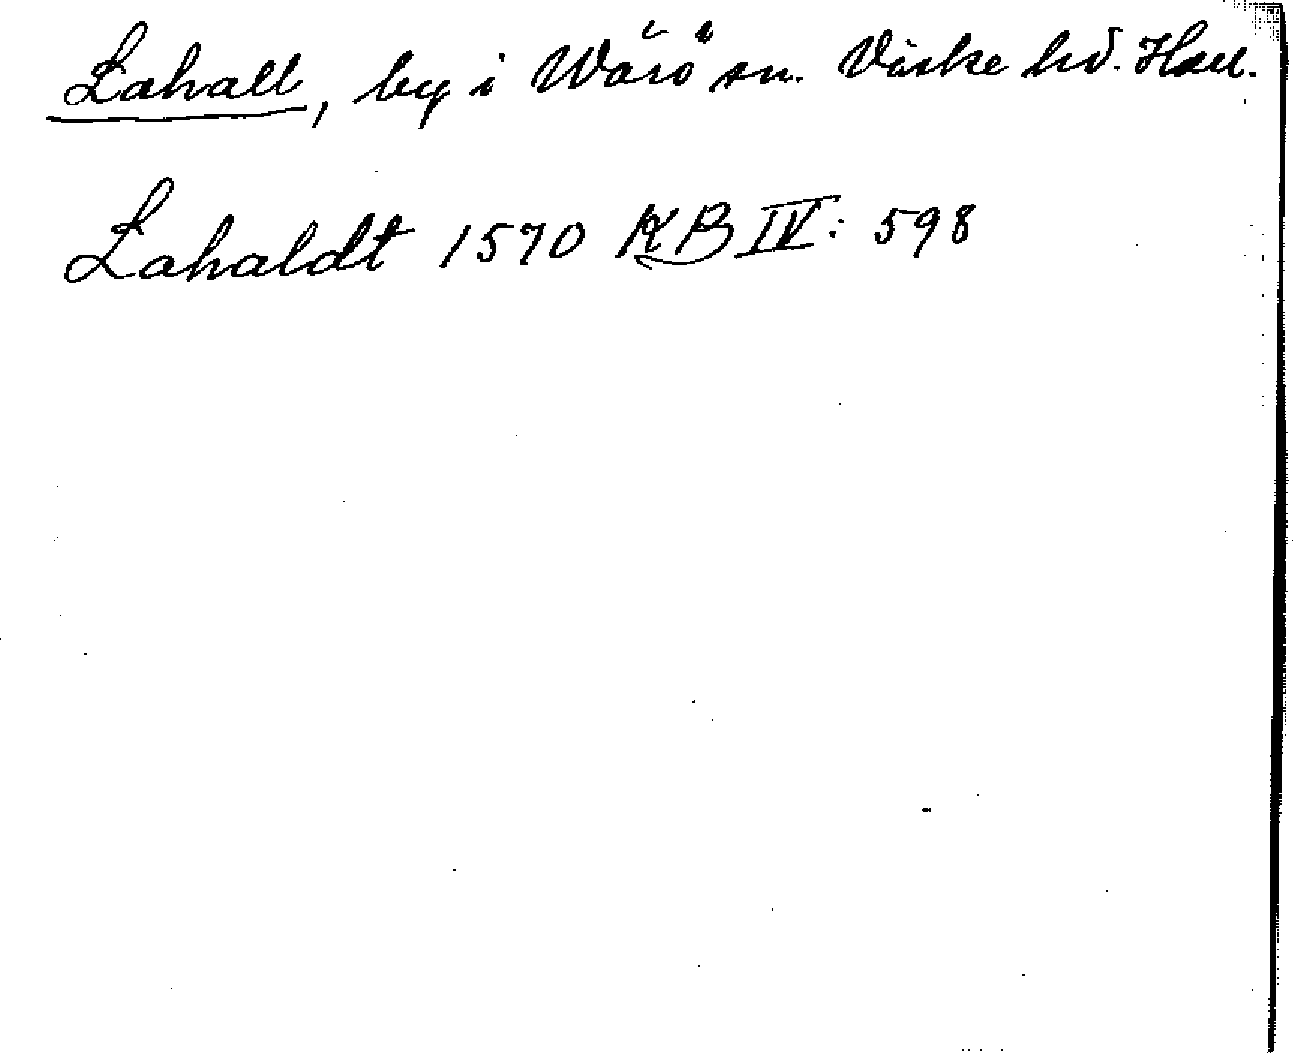 Lahall, by i Värö sn. Viske hd. Hall.
Lahaldt 1570 KB IV: 598